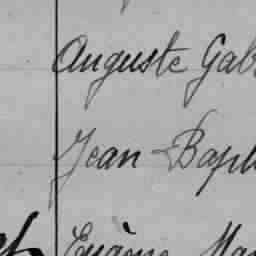 Auguste Gab
Jean-Bapt
Eugène Ma